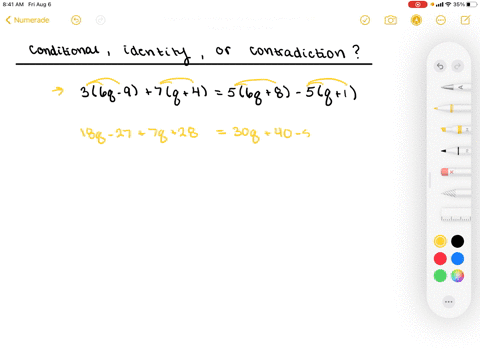 8:41 AM Fri Aug 6
35%
Numerade
conditional, identity, or contradiction?
→ 3(6q-9) + 7(q+4) = 5(6q+8) - 5(q+1)
18q - 27 + 7q + 28 = 30q + 40 - 5